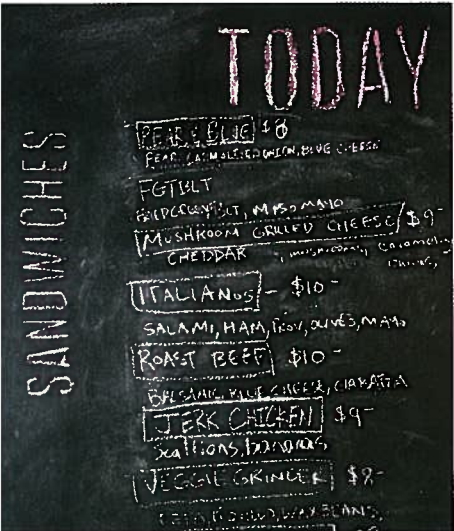 TODAY
SANDWICHES
PEAR & BLUE $8
PEAR, CARMELIZED ONION, BLUE CHEESE
FGTBLT
BLT, MISO MAYO
MUSHROOM GRILLED CHEESE $9-
CHEDDAR, mushrooms, caramelized onions,
ITALIANOS - $10-
SALAMI, HAM, PROV, OLIVES, MAYO
ROAST BEEF $10-
BALSAMIC, BLUE CHEESE, CIABATTA
JERK CHICKEN $9-
Scallions, bananas
VEGGIE GRINDER $8-
WAX BEANS,